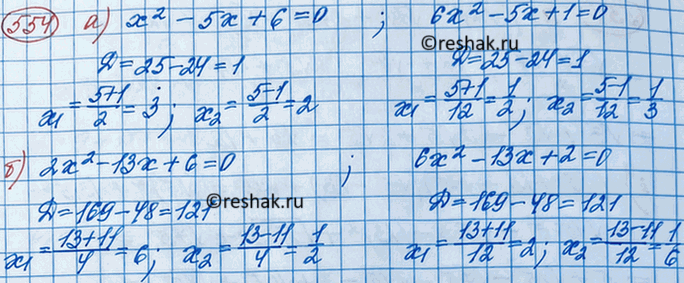 554 а) x² - 5x + 6 = 0 ; 6x² - 5x + 1 = 0
©reshak.ru
Д = 25 - 24 = 1 Д = 25 - 24 = 1
x₁ = (5+1)/2 = 3; x₂ = (5-1)/2 = 2 x₁ = (5+1)/12 = 1/2; x₂ = (5-1)/12 = 1/3
б) 2x² - 13x + 6 = 0 ; 6x² - 13x + 2 = 0
Д = 169 - 48 = 121 Д = 169 - 48 = 121
©reshak.ru
x₁ = (13+11)/4 = 6; x₂ = (13-11)/4 = 1/2 x₁ = (13+11)/12 = 2; x₂ = (13-11)/12 = 1/6